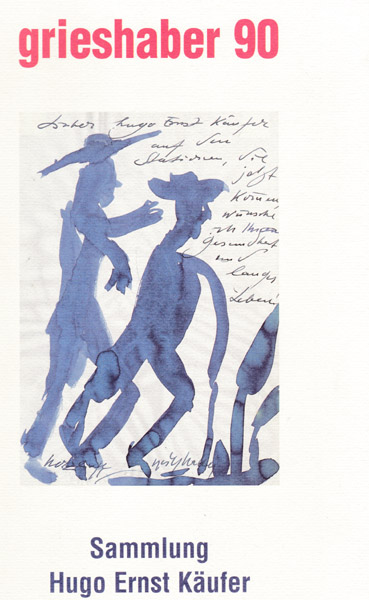 grieshaber 90
Lieber Hugo Ernst Käufer
auf den
Stationen, die
jetzt
kommen
wünsche
ich Ihnen
Gesundheit
und
langes
Leben!
Sammlung
Hugo Ernst Käufer